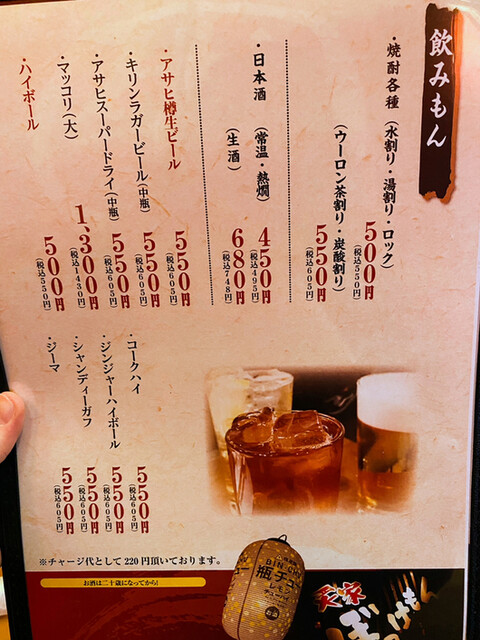 飲みもん
・焼酎各種（水割り・湯割り・ロック）
500円
（税込550円）
（ウーロン茶割り・炭酸割り）
550円
（税込605円）
・日本酒（常温・熱燗）
450円
（税込495円）
（生酒）
680円
（税込748円）
・アサヒ樽生ビール
550円
（税込605円）
・キリンラガービール（中瓶）
550円
（税込605円）
・アサヒスーパードライ（中瓶）
550円
（税込605円）
・マッコリ（大）
1,300円
（税込1430円）
・ハイボール
500円
（税込550円）
・コークハイ
550円
（税込605円）
・ジンジャーハイボール
550円
（税込605円）
・シャンディーガフ
550円
（税込605円）
・ジーマ
550円
（税込605円）
※チャージ代として220円頂いております。
お酒は二十歳になってから！
BIN
瓶チュー